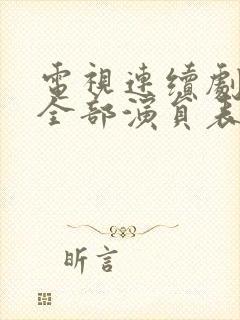 電視連續劇
全部演員表
昕言